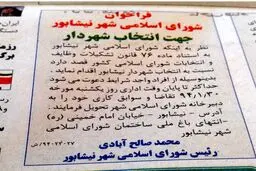 فراخوان
شورای اسلامی شهر نیشابور
جهت انتخاب شهردار
نظر به اینکه شورای اسلامی شهر نیشابور
به استناد ماده ۷۶ قانون تشکیلات وظایف
و انتخابات شورای اسلامی کشور قصد دارد
نسبت به انتخاب شهردار نیشابور اقدام نماید.
بدینوسیله از افراد واجد شرایط دعوت می شود
حداکثر تا پایان وقت اداری روز یکشنبه مورخ
۹۴/۱/۳۰ تقاضا و سوابق کاری خود را به
دبیرخانه شورای اسلامی شهر تحویل فرمایند.
آدرس: نیشابور - خیابان امام خمینی (ره)
-انتهای باغ ملی ساختمان شورای اسلامی
شهر نیشابور
محمد صالح آبادی
رئیس شورای اسلامی شهر نیشابور